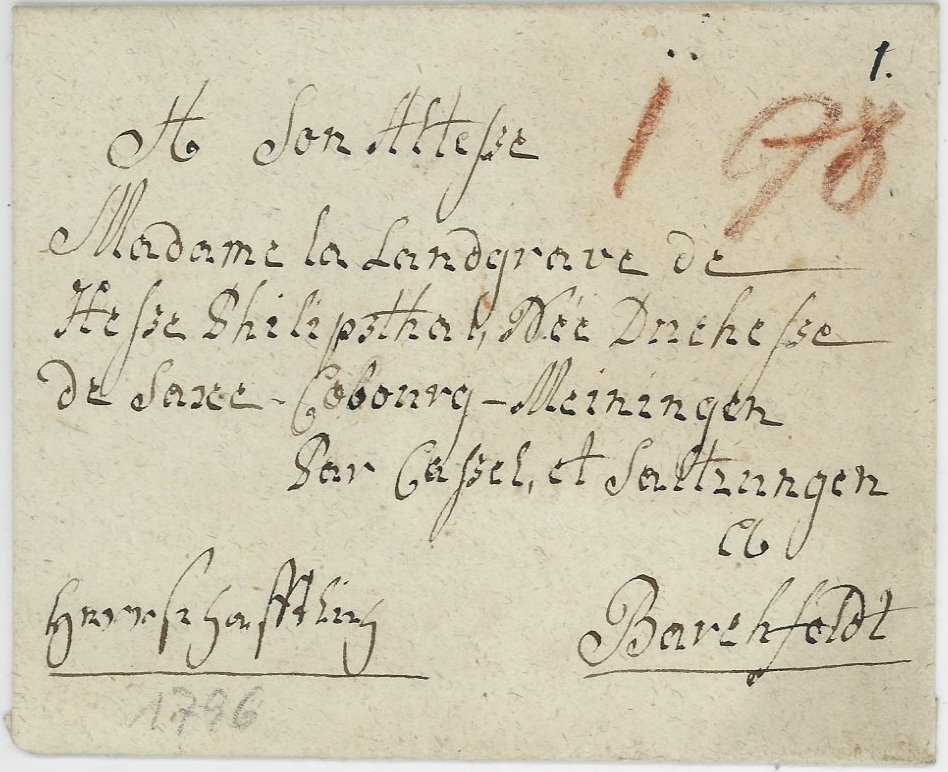 1.
1 98
A Son Altesse
Madame la Landgrave de
Hesse Philipsthal, Née Duchesse
de Saxe-Cobourg-Meiningen
Par Cassel, et Saltzungen
a
herrschafftlich
Barchfeldt
1796